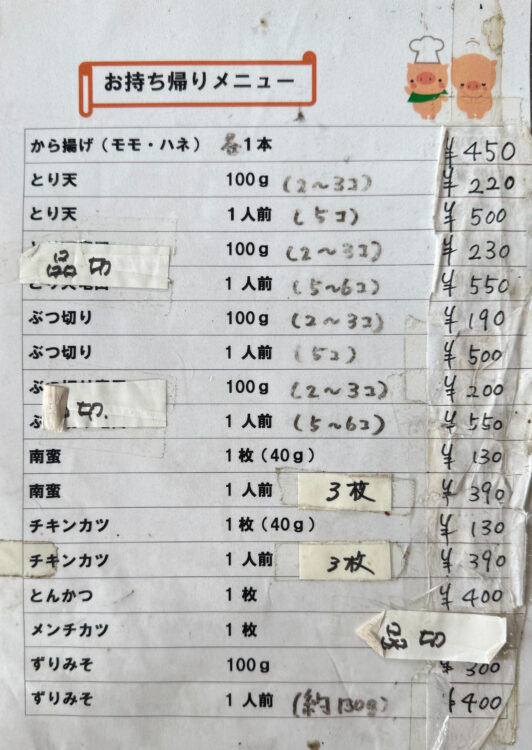 お持ち帰りメニュー
から揚げ（モモ・ハネ） 各1本 ¥450
とり天 100g (2〜3コ) ¥220
とり天 1人前 (5コ) ¥500
品切 100g (2〜3コ) ¥230
1人前 (5〜6コ) ¥550
ぶつ切り 100g (2〜3コ) ¥190
ぶつ切り 1人前 (5コ) ¥500
ぶ 切. 100g (2〜3コ) ¥200
1人前 (5〜6コ) ¥550
南蛮 1枚（40g） ¥130
南蛮 1人前 3枚 ¥390
チキンカツ 1枚（40g） ¥130
チキンカツ 1人前 3枚 ¥390
とんかつ 1枚 ¥400
メンチカツ 1枚 品切
ずりみそ 100g ¥300
ずりみそ 1人前 (約130g) ¥400